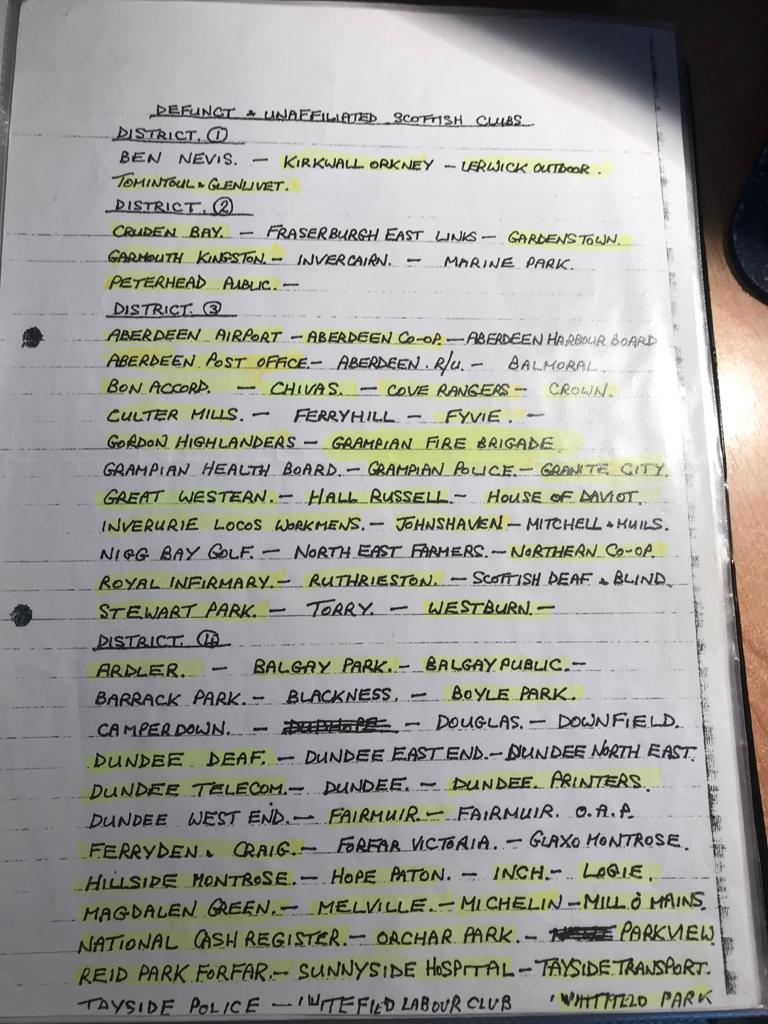 DEFUNCT & UNAFFILIATED SCOTTISH CLUBS
DISTRICT. ①
BEN NEVIS. — KIRKWALL ORKNEY — LERWICK OUTDOOR.
TOMINTOUL & GLENLIVET.
DISTRICT. ②
CRUDEN BAY. — FRASERBURGH EAST LINKS — GARDENSTOWN.
GARMOUTH KINGSTON. — INVERCAIRN. — MARINE PARK.
PETERHEAD PUBLIC. —
DISTRICT. ③
ABERDEEN AIRPORT — ABERDEEN CO-OP. — ABERDEEN HARBOUR BOARD
ABERDEEN POST OFFICE. — ABERDEEN. R/U. — BALMORAL
BON ACCORD. — CHIVAS. — COVE RANGERS — CROWN.
CULTER MILLS. — FERRYHILL — FYVIE. —
GORDON HIGHLANDERS — GRAMPIAN FIRE BRIGADE
GRAMPIAN HEALTH BOARD. — GRAMPIAN POLICE. — GRANITE CITY.
GREAT WESTERN. — HALL RUSSELL. — HOUSE OF DAVIOT.
INVERURIE LOCOS WORKMENS. — JOHNSHAVEN — MITCHELL & MUILS.
NIGG BAY GOLF. — NORTH EAST FARMERS. — NORTHERN CO-OP.
ROYAL INFIRMARY. — RUTHRIESTON. — SCOTTISH DEAF & BLIND.
STEWART PARK. — TORRY. — WESTBURN. —
DISTRICT. ④
ARDLER. — BALGAY PARK. — BALGAY PUBLIC. —
BARRACK PARK. — BLACKNESS. — BOYLE PARK.
CAMPERDOWN. — — DOUGLAS. — DOWNFIELD.
DUNDEE DEAF. — DUNDEE EAST END. — DUNDEE NORTH EAST.
DUNDEE TELECOM. — DUNDEE. — DUNDEE PRINTERS.
DUNDEE WEST END. — FAIRMUIR. — FAIRMUIR. O.A.P.
FERRYDEN & CRAIG. — FORFAR VICTORIA. — GLAXO MONTROSE.
HILLSIDE MONTROSE. — HOPE PATON. — INCH. — LOGIE.
MAGDALEN GREEN. — MELVILLE. — MICHELIN — MILL O MAINS.
NATIONAL CASH REGISTER. — ORCHAR PARK. — PARKVIEW
REID PARK FORFAR. — SUNNYSIDE HOSPITAL — TAYSIDE TRANSPORT.
TAYSIDE POLICE — LABOUR CLUB PARK